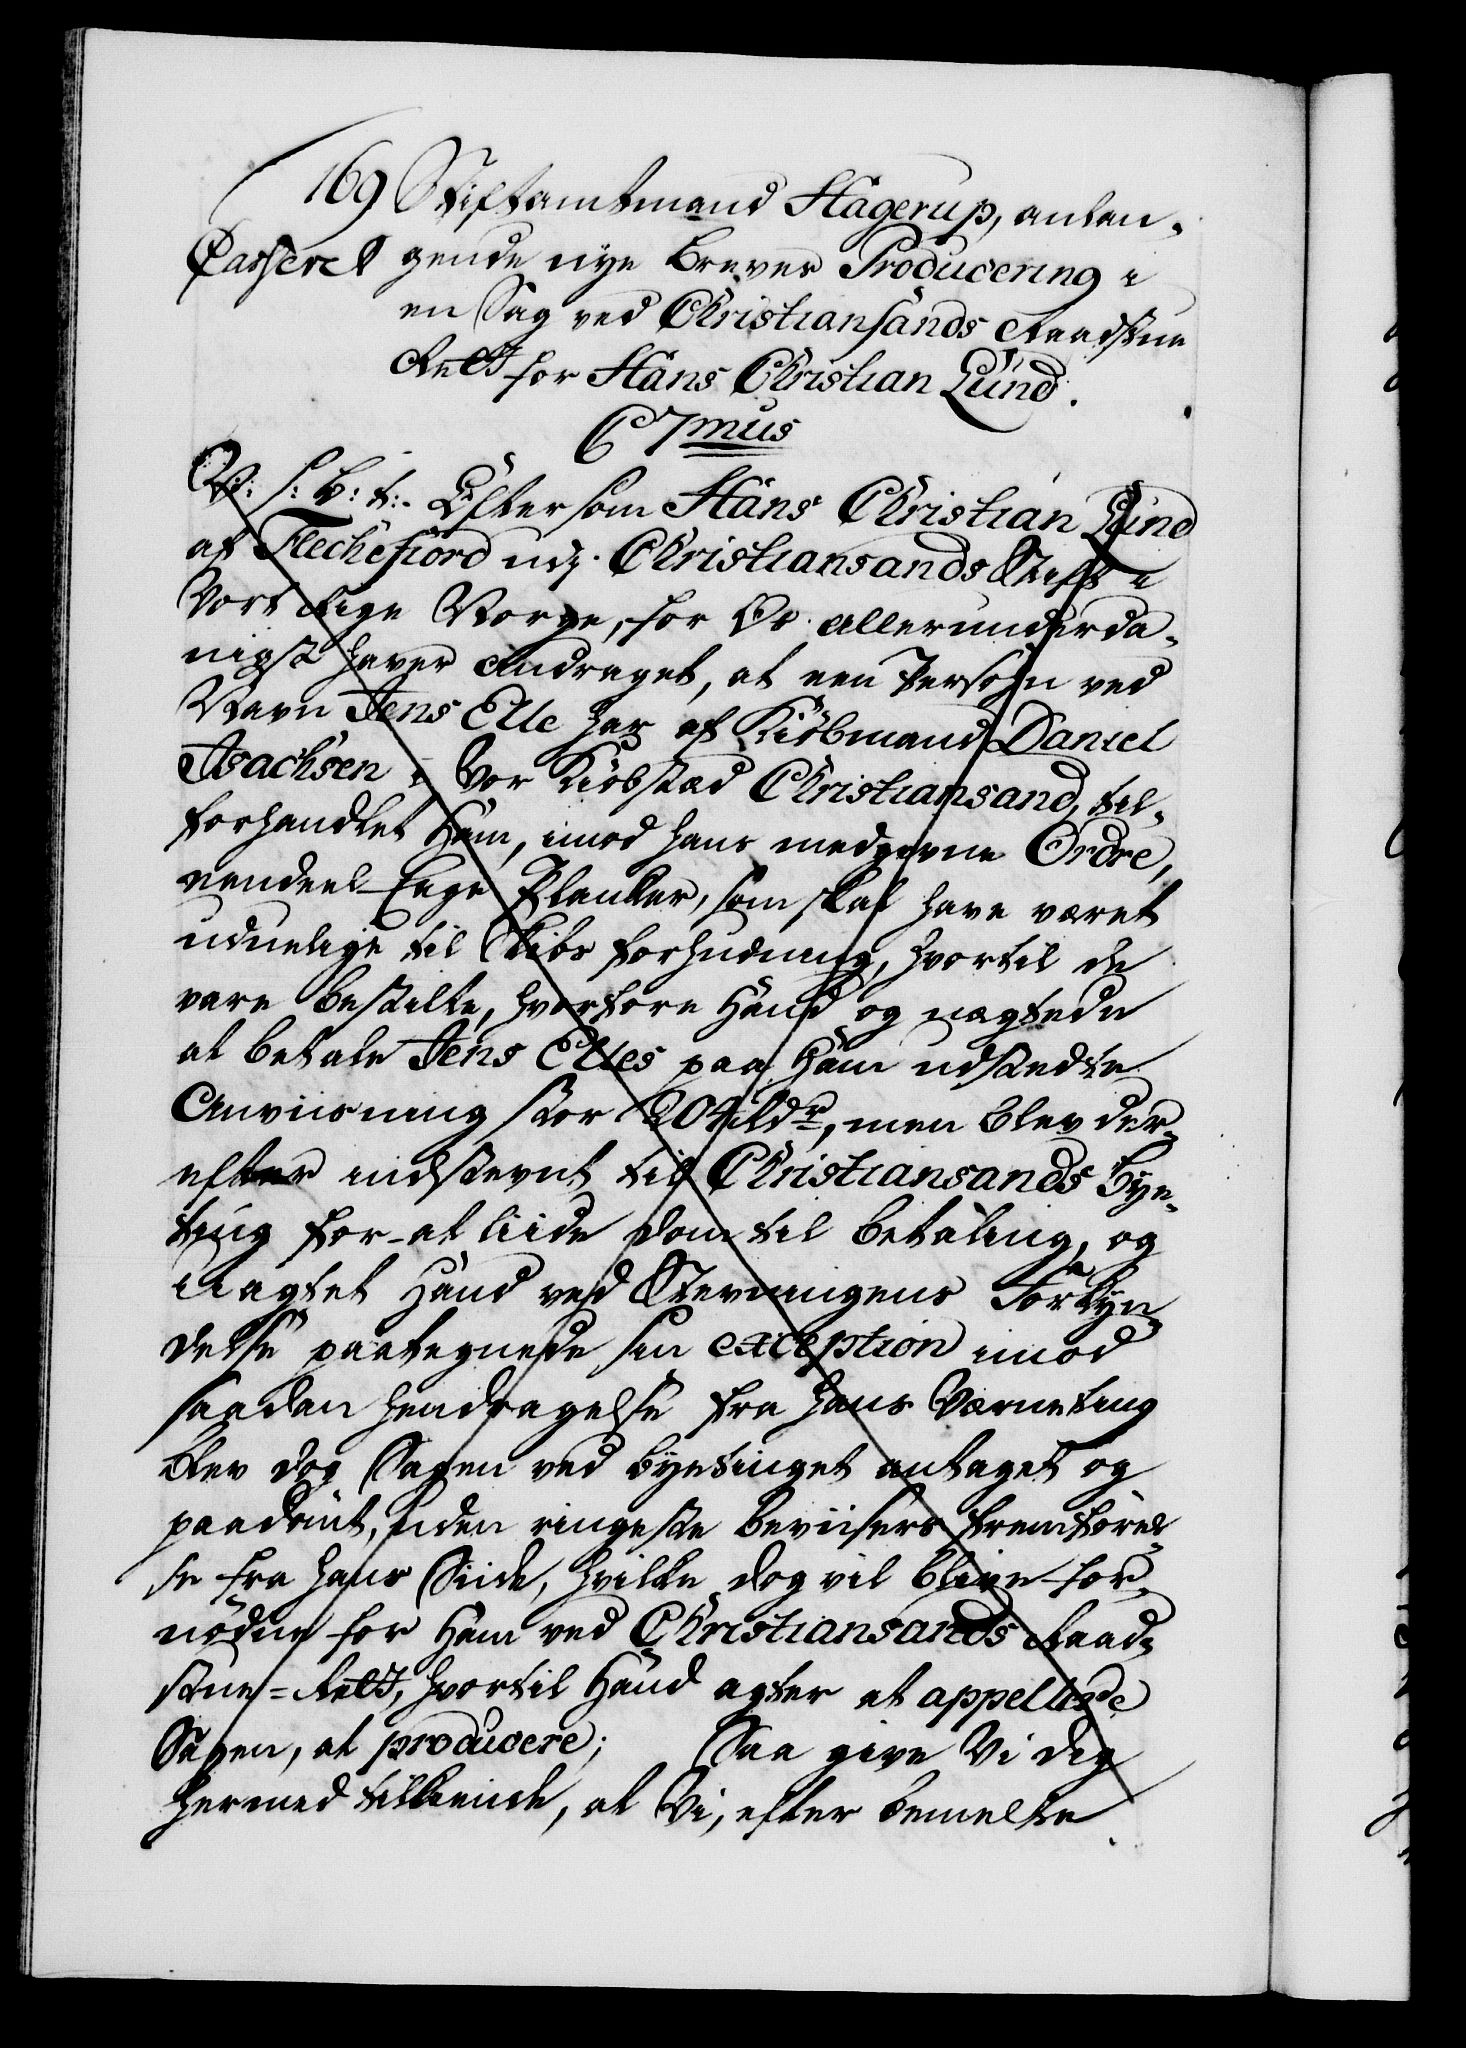 169 Stiftamtmand Hagerup, anlan-
Casseret gende nye Brever Producering i
en Sag ved Christiansands Raadstue
Rett for Hans Christian Lund.
C 7mus
V: S: B: t:. Efter som Hans Christian Lund
af Flechefiord udj Christiansands Stift i
Vort Rige Norge, for Os allerunderda-
nigst haver Andraget, at een Persohn ved
Navn Jens Elle har af Kiöbmand Daniel
Isachsen i Vor Kiöbstad Christiansand, til-
forhandlet Ham, imod hans medgivne Ordre,
eendeel Eege Planker, som skal have været
uduelige til Skibs forhudning, hvortil de
vare bestilte, hvorfore Hand og nægtede
at betale Jens Elles paa Ham udstedte
Anviisning stor 204 Rdr, men blev der-
efter indstevnt til Christiansands Bye-
ting for at liide Dom til betaling, og
uagtet Hand ved Stevningens Forkyn-
delse paategnede sin exception imod
saadan hendragelse fra hans Værneting
blev dog Sagen ved byetinget antaget og
paadömt, uden ringeste beviisers fremförel-
se fra hans Siide, hvilke dog vil blive for-
nöden for Ham ved Christiansands Raad-
stue-Rett, hvortil Hand agter at appellere
Sagen, at producere; Saa give Vi dig
hermed tilkiende, at Vi, efter bemelte